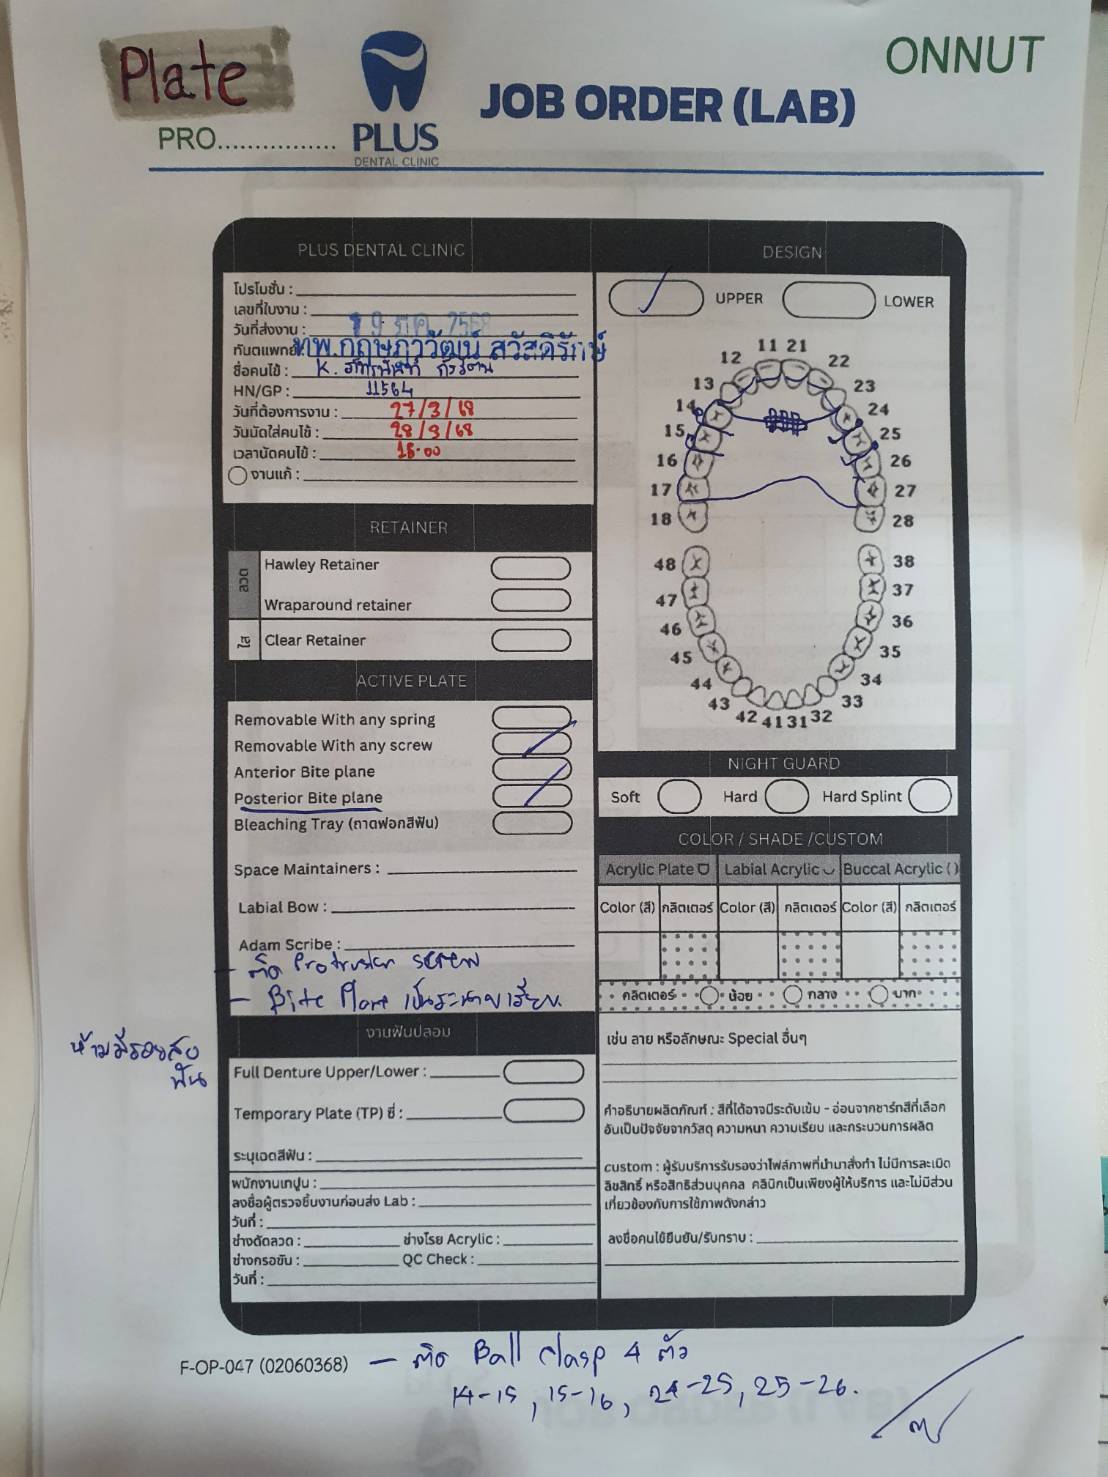 Plate
ONNUT
PRO................
PLUS
DENTAL CLINIC
JOB ORDER (LAB)
PLUS DENTAL CLINIC
โปรโมชั่น :
เลขที่ใบงาน :
วันที่ส่งงาน :
ทันตแพทย์ ทพ.กฤษภาวัฒน์ สวัสดิรักษ์
ชื่อคนไข้ : K.
HN/GP : 11564
วันที่ต้องการงาน : 27/3/68
วันนัดใส่คนไข้ : 28/3/68
เวลานัดคนไข้ : 18.00
งานแก้ :
RETAINER
ลวด
Hawley Retainer
Wraparound retainer
ใส
Clear Retainer
ACTIVE PLATE
Removable With any spring
Removable With any screw
Anterior Bite plane
Posterior Bite plane
Bleaching Tray (ถาดฟอกสีฟัน)
Space Maintainers :
Labial Bow :
Adam Scribe :
- ติด Protrusion screw
- Bite Plane เป็นระนาบเรียบ
ห้ามมีรอยสบ
ฟัน
งานฟันปลอม
Full Denture Upper/Lower :
Temporary Plate (TP) ซี่ :
ระบุเฉดสีฟัน :
พนักงานเทปูน :
ลงชื่อผู้ตรวจชิ้นงานก่อนส่ง Lab :
วันที่ :
ช่างดัดลวด : ช่างโรย Acrylic :
ช่างกรอขัน : QC Check :
วันที่ :
DESIGN
UPPER LOWER
11 21
12 22
13 23
14 24
15 25
16 26
17 27
18 28
48 38
47 37
46 36
45 35
44 34
43 33
42 41 31 32
NIGHT GUARD
Soft Hard Hard Splint
COLOR / SHADE /CUSTOM
Acrylic Plate Labial Acrylic Buccal Acrylic ( )
Color (สี) กลิตเตอร์ Color (สี) กลิตเตอร์ Color (สี) กลิตเตอร์
กลิตเตอร์ น้อย กลาง มาก
เช่น ลาย หรือลักษณะ Special อื่นๆ
คำอธิบายผลิตภัณฑ์ : สีที่ได้อาจมีระดับเข้ม - อ่อนจากชาร์ทสีที่เลือก
อันเป็นปัจจัยจากวัสดุ ความหนา ความเรียบ และกระบวนการผลิต
custom : ผู้รับบริการรับรองว่าไฟล์ภาพที่นำมาสั่งทำ ไม่มีการละเมิด
ลิขสิทธิ์ หรือสิทธิส่วนบุคคล คลินิกเป็นเพียงผู้ให้บริการ และไม่มีส่วน
เกี่ยวข้องกับการใช้ภาพดังกล่าว
ลงชื่อคนไข้ยืนยัน/รับทราบ :
F-OP-047 (02060368)
- ติด Ball clasp 4 ตัว
14-15, 15-16, 24-25, 25-26.